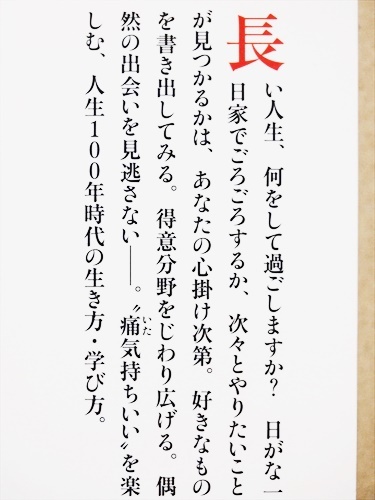 長い人生、何をして過ごしますか？　日がな一
日家でごろごろするか、次々とやりたいこと
が見つかるかは、あなたの心掛け次第。好きなもの
を書き出してみる。得意分野をじわり広げる。偶
然の出会いを見逃さない――。〝痛気持ちいい〟を楽
しむ、人生１００年時代の生き方・学び方。
いた